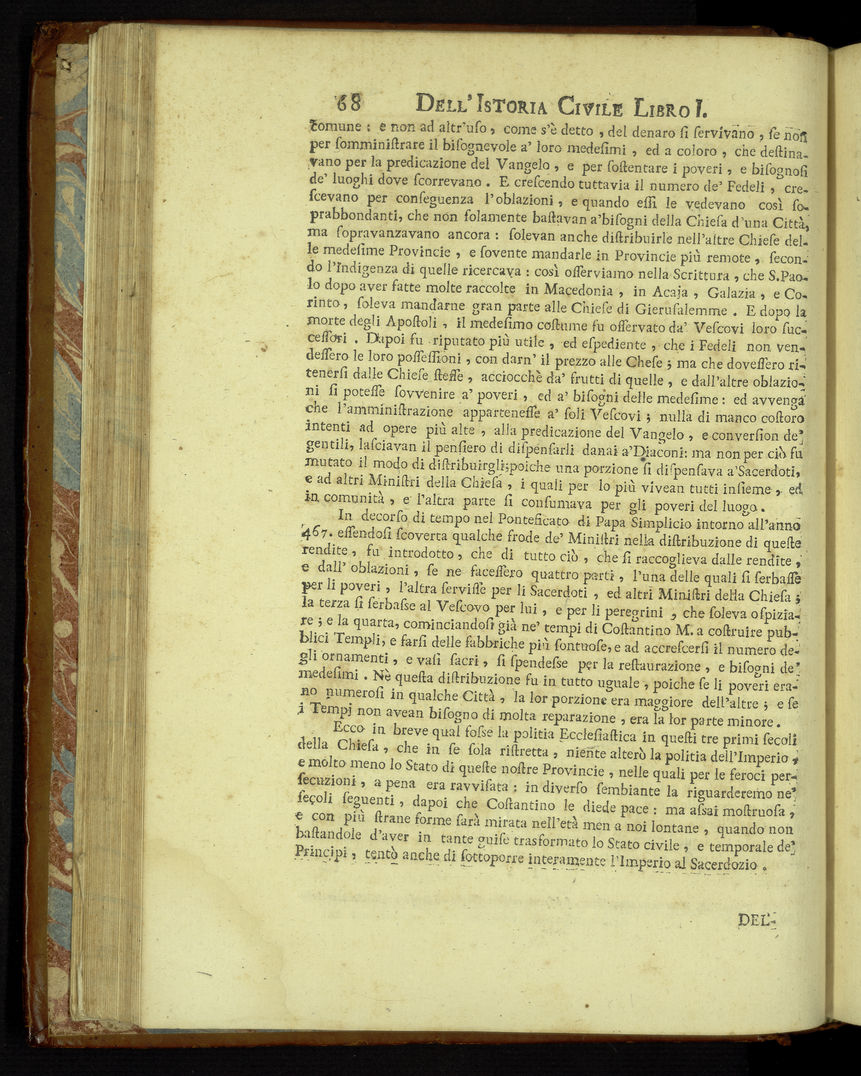 68 DELL' ISTORIA CIVILE LIBRO I.
comune : e non ad altr'uſo , come s'è detto , del denaro ſi ſervivano , ſe non
per ſomminiſtrare il biſognevole a' loro medeſimi , ed a coloro , che deſtina-
vano per la predicazione del Vangelo , e per ſoſtentare i poveri , e biſognoſi
de' luoghi dove ſcorrevano . E creſcendo tuttavia il numero de' Fedeli , cre-
ſcevano per conſeguenza l'oblazioni , e quando eſſi le vedevano così ſo-
prabbondanti, che non ſolamente baſtavan a'biſogni della Chieſa d'una Città,
ma ſopravanzavano ancora : ſolevan anche diſtribuirle nell'altre Chieſe del-
le medeſime Provincie , e ſovente mandarle in Provincie più remote , ſecon-
do l'Indigenza di quelle ricercava : così oſſerviamo nella Scrittura , che S.Pao-
lo dopo aver fatte molte raccolte in Macedonia , in Acaja , Galazia , e Co-
rinto , ſoleva mandarne gran parte alle Chieſe di Gieruſalemme . E dopo la
morte degli Apoſtoli , il medeſimo coſtume fu oſſervato da' Veſcovi loro ſuc-
ceſſori . Dapoi fu riputato più utile , ed eſpediente , che i Fedeli non ven-
deſſero le loro poſſeſſioni , con darn' il prezzo alle Cheſe ; ma che doveſſero ri-
tenerſi dalle Chieſe ſteſſe , acciocchè da' frutti di quelle , e dall'altre oblazio-
ni ſi poteſſe ſovvenire a' poveri , ed a' biſogni delle medeſime : ed avvenga
che l'amminiſtrazione apparteneſſe a' ſoli Veſcovi ; nulla di manco coſtoro
intenti ad opere più alte , alla predicazione del Vangelo , e converſion de'
gentili, laſciavan il penſiero di diſpenſarli danai a'Diaconi: ma non per ciò fu
mutato il modo di diſtribuirgli;poiche una porzione ſi diſpenſava a'Sacerdoti,
e ad altri Miniſtri della Chieſa , i quali per lo più vivean tutti inſieme , ed
in comunità , e l'altra parte ſi conſumava per gli poveri del luogo .
In decorſo di tempo nel Ponteficato di Papa Simplicio intorno all'anno
467. eſſendoſi ſcoverta qualche frode de' Miniſtri nella diſtribuzione di queſte
rendite , fu introdotto , che di tutto ciò , che ſi raccoglieva dalle rendite ,
e dall' oblazioni , ſe ne faceſſero quattro parti , l'una delle quali ſi ſerbaſſe
per li poveri , l'altra ſerviſſe per li Sacerdoti , ed altri Miniſtri della Chieſa ;
la terza ſi ſerbaſse al Veſcovo per lui , e per li peregrini , che ſoleva oſpizia-
re ; e la quarta, cominciandoſi già ne' tempi di Coſtantino M. a coſtruire pub-
blici Templi, e farſi delle fabbriche più ſontuoſe, e ad accreſcerſi il numero de-
gli ornamenti , e vaſi ſacri , ſi ſpendeſse per la reſtaurazione , e biſogni de'
medeſimi . Nè queſta diſtribuzione fu in tutto uguale , poiche ſe li poveri era-
no numeroſi in qualche Città , la lor porzione era maggiore dell'altre ; e ſe
i Tempj non avean biſogno di molta reparazione , era la lor parte minore .
Ecco in breve qual foſse la politia Eccleſiaſtica in queſti tre primi ſecoli
della Chieſa , che in ſe ſola riſtretta , niente alterò la politia dell'Imperio ,
e molto meno lo Stato di queſte noſtre Provincie , nelle quali per le feroci per-
ſecuzioni , a pena era ravviſata : in diverſo ſembiante la riguarderemo ne'
ſecoli ſeguenti , dapoi che Coſtantino le diede pace : ma aſsai moſtruoſa ,
e con più ſtrane forme ſarà mirata nell'età men a noi lontane , quando non
baſtandole d'aver in tante guiſe trasformato lo Stato civile , e temporale de'
Principi , tentò anche di ſottoporre interamente l'Imperio al Sacerdozio .
DEL-